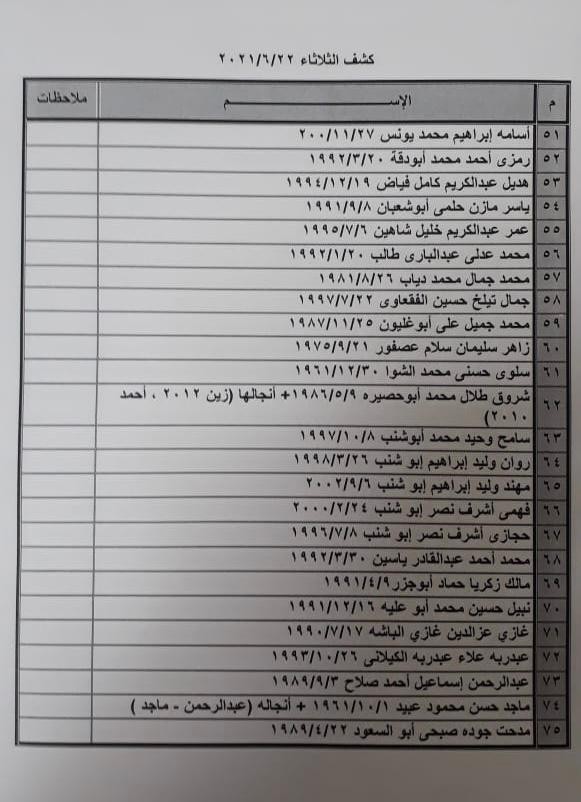 كشف الثلاثاء ٢٠٢١/٦/٢٢
م الإســـــــــم ملاحظات
٥١ أسامه إبراهيم محمد يونس ٢٠٠/١١/٢٧
٥٢ رمزى أحمد محمد أبودقة ١٩٩٢/٣/٢٠
٥٣ هديل عبدالكريم كامل فياض ١٩٩٤/١٢/١٩
٥٤ ياسر مازن حلمى أبوشعبان ١٩٩١/٩/٨
٥٥ عمر عبدالكريم خليل شاهين ١٩٩٥/٧/٦
٥٦ محمد عدلى عبدالبارى طالب ١٩٩٢/١/٢٠
٥٧ محمد جمال محمد دياب ١٩٨١/٨/٢٦
٥٨ جمال تيلخ حسين الفقعاوى ١٩٩٧/٧/٢٢
٥٩ محمد جميل على أبوغليون ١٩٨٧/١١/٢٥
٦٠ زاهر سليمان سلام عصفور ١٩٧٥/٩/٢١
٦١ سلوى حسنى محمد الشوا ١٩٦١/١٢/٣٠
٦٢ شروق طلال محمد أبوحصيره ١٩٨٦/٥/٩+ أنجالها (زين ٢٠١٢ ، أحمد
٢٠١٠)
٦٣ سامح وحيد محمد أبوشنب ١٩٩٧/١٠/٨
٦٤ روان وليد إبراهيم إبو شنب ١٩٩٨/٣/٢٦
٦٥ مهند وليد إبراهيم إبو شنب ٢٠٠٢/٩/٦
٦٦ فهمى أشرف نصر إبو شنب ٢٠٠٠/٢/٢٤
٦٧ حجازى أشرف نصر إبو شنب ١٩٩٦/٧/٨
٦٨ محمد أحمد عبدالقادر ياسين ١٩٩٢/٣/٣٠
٦٩ مالك زكريا حماد أبوجزر ١٩٩١/٤/٩
٧٠ نبيل حسين محمد أبو عليه ١٩٩١/١٢/١٦
٧١ غازي عزالدين غازي الباشه ١٩٩٠/٧/١٧
٧٢ عبدربه علاء عبدربه الكيلانى ١٩٩٣/١٠/٢٦
٧٣ عبدالرحمن إسماعيل أحمد صلاح ١٩٨٩/٩/٣
٧٤ ماجد حسن محمود عبيد ١٩٦١/١٠/١ + أنجاله (عبدالرحمن - ماجد )
٧٥ مدحت جوده صبحى أبو السعود ١٩٨٩/٤/٢٢